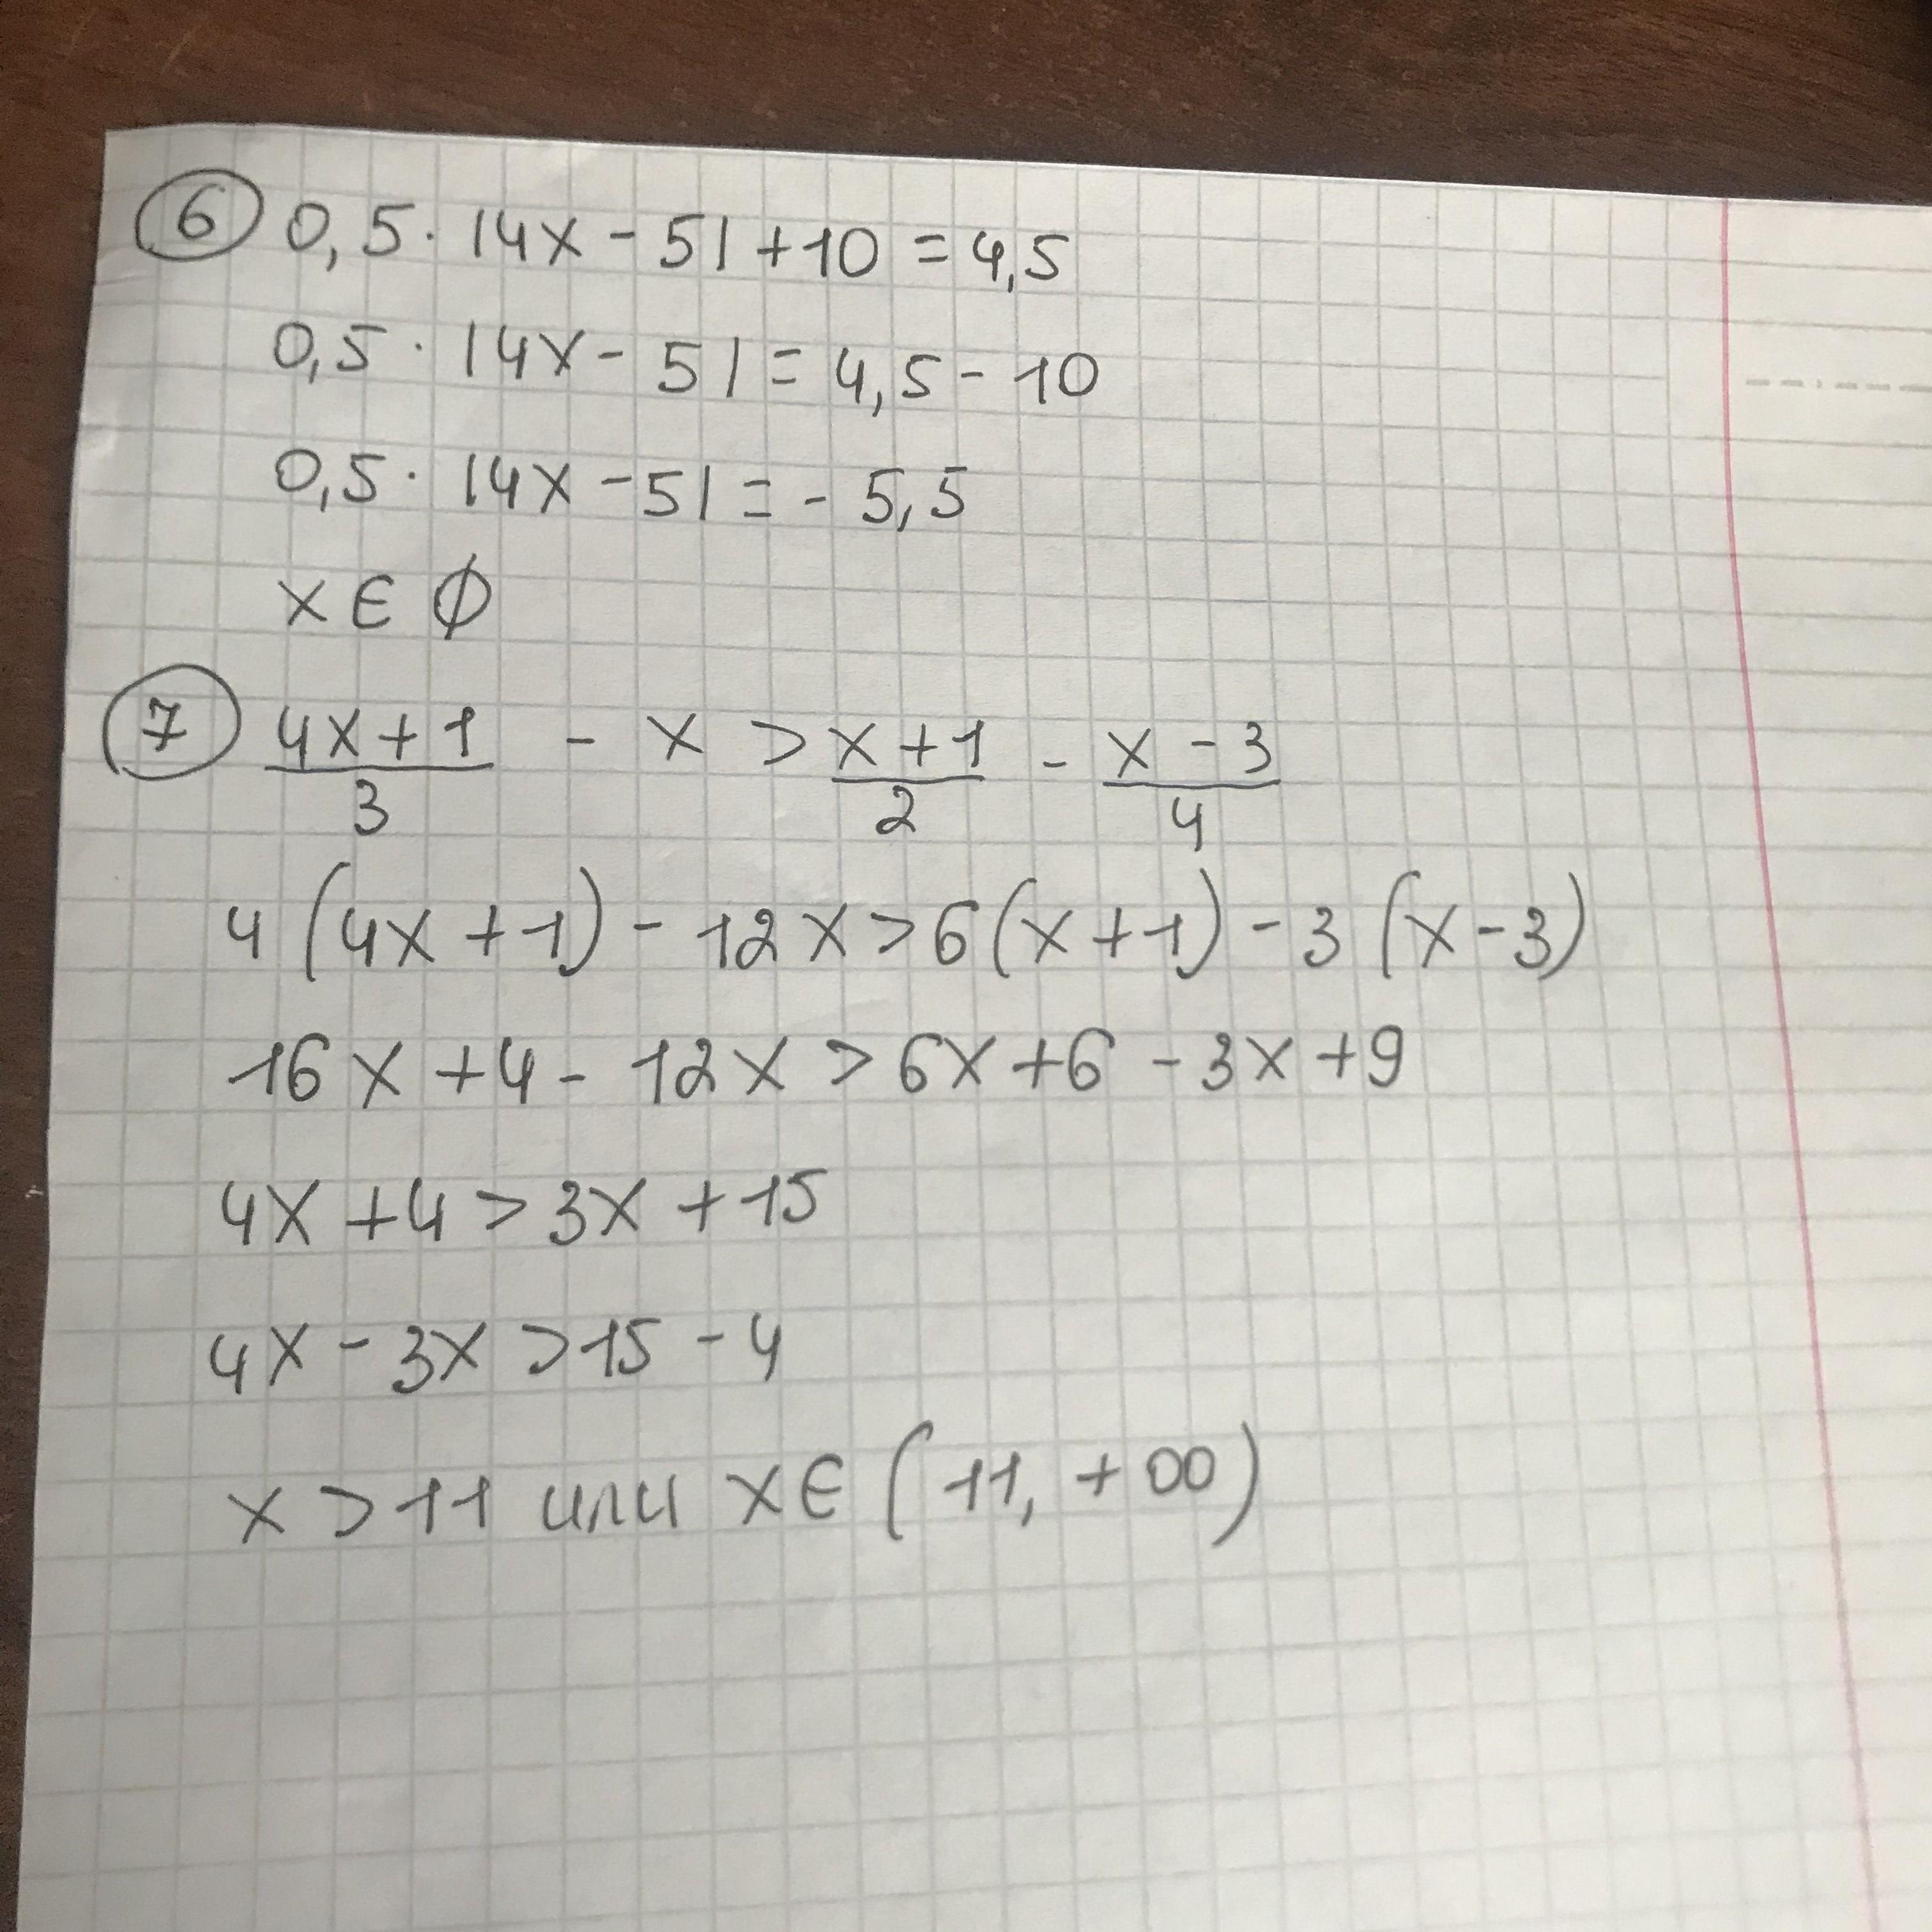 6 0,5 · |4x - 5| + 10 = 4,5
0,5 · |4x - 5| = 4,5 - 10
0,5 · |4x - 5| = - 5,5
x ∈ ∅
7 (4x + 1)/3 - x > (x + 1)/2 - (x - 3)/4
4(4x + 1) - 12x > 6(x + 1) - 3(x - 3)
16x + 4 - 12x > 6x + 6 - 3x + 9
4x + 4 > 3x + 15
4x - 3x > 15 - 4
x > 11 или x ∈ (11, +∞)